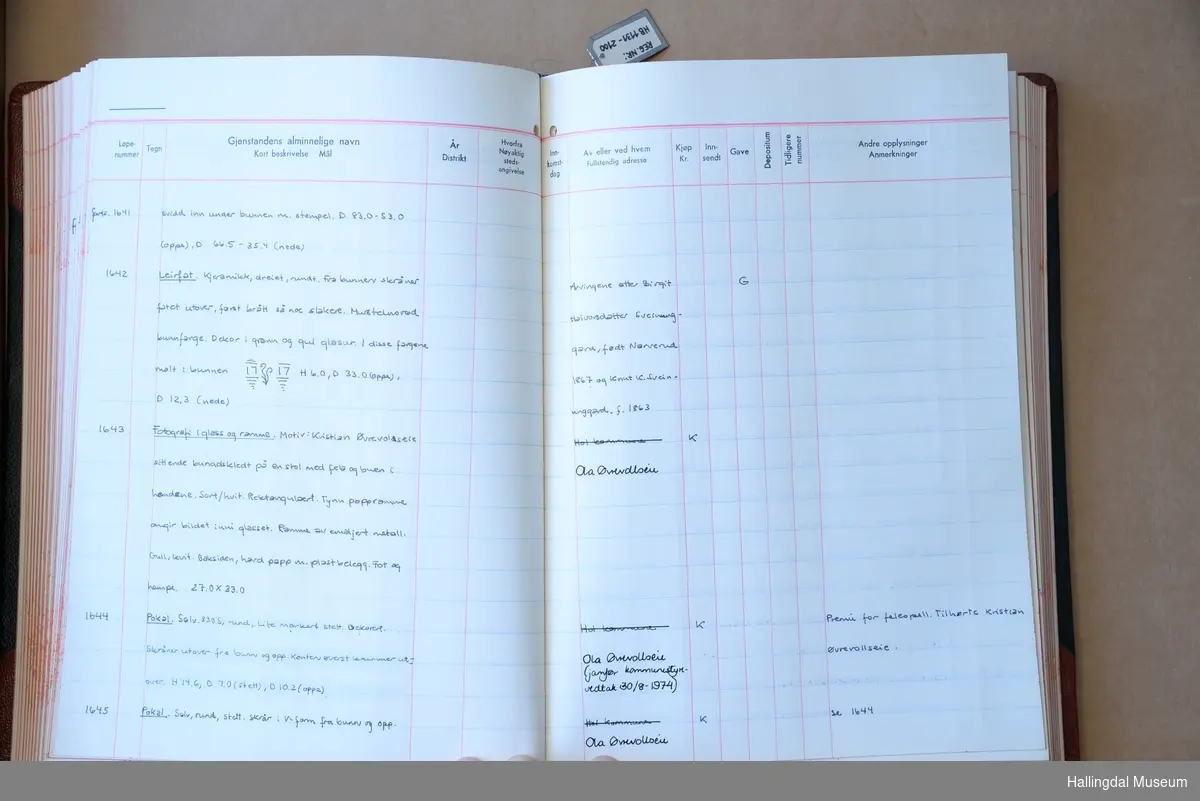 REG.NR:
HB 1131-2100
Løpe-
nummer
Tegn
Gjenstandens alminnelige navn
Kort beskrivelse Mål
År
Distrikt
Hvorfra
Nøyaktig
steds-
angivelse
Inn-
komst-
dag
Av eller ved hvem
Fullstendig adresse
Kjøp
Kr.
Inn-
sendt
Gave
Depositum
Tidligere
nummer
Andre opplysninger
Anmerkninger
forts. 1641 svidd inn under bunnen m. stempel. D 83.0-53.0
(oppe), D 66.5-35.4 (nede)
1642 Leirfat. Kjeramikk, dreiet, rundt. Fra bunnen skråner
fatet utover, først brått så noe slakere. Murstensrød
bunnfarge. Dekor i grønn og gul glasur. I disse fargene
malt i bunnen 17 17 H 6.0, D 33.0 (oppe),
D 12,3 (nede)
Arvingene etter Birgit G
Halvorsdatter Sveinung-
gard, født Nørverud
1867 og Knut K. Svein-
unggard, f. 1863
1643 Fotografi i glass og ramme. Motiv: Kristian Øvrevollseie
sittende bunadskledt på en stol med fele og buen i
hendene. Sort/hvit. Rektangulært. Tynn pappramme
omgir bildet inni glasset. Ramme av emaljert metall.
Gull, hvit. Baksiden, hard papp m. plastbelegg. Fot og
hempe. 27.0 x 33.0
Hol kommune K
Ola Øvrevollseie
1644 Pokal. Sølv. 830S, rund, lite markert stett. Dekorert.
Skråner utover fra bunn og opp. Kanten øverst krummer ut-
over. H 14.6, D 7.0 (stett), D 10.2 (oppe)
Hol kommune K
Ola Øvrevollseie
(jamfør kommunestyre-
vedtak 30/8-1974)
Premie for felespell. Tilhørte Kristian
Øvrevollseie.
1645 Pokal. Sølv, rund, stett. Skrår i V-form fra bunn og opp.
Hol kommune K
Ola Øvrevollseie
se 1644
Hallingdal Museum